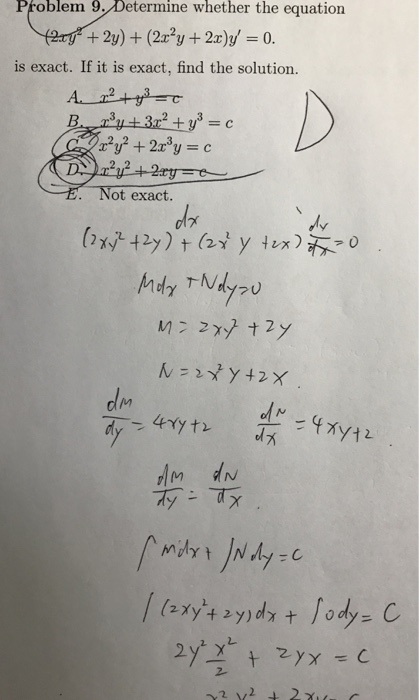 Problem 9. Determine whether the equation
(2xy² + 2y) + (2x²y + 2x)y′ = 0.
is exact. If it is exact, find the solution.
A. x² + y³ = c
B. x³y + 3x² + y³ = c
C. x²y² + 2x³y = c
D. x²y² + 2xy = c
E. Not exact.
D
dx
(2xy² + 2y) + (2x² y + 2x) dy/dx = 0
Mdx + Ndy = 0
M = 2xy² + 2y
N = 2x² y + 2x
dM/dy = 4xy+2 dN/dx = 4xy+2
dM/dy = dN/dx
∫ Mdx + ∫ N dy = C
∫ (2xy² + 2y) dx + ∫ 0 dy = C
2y² x²/2 + 2yx = C
x² y² + 2xy = C